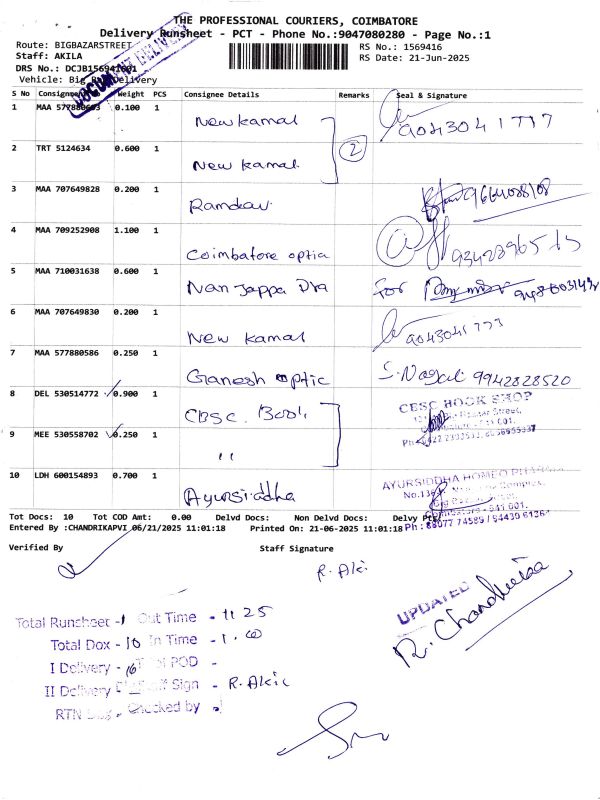 THE PROFESSIONAL COURIERS, COIMBATORE
Delivery Runsheet - PCT - Phone No.:9047080280 - Page No.:1
Route: BIGBAZARSTREET RS No.: 1569416
Staff: AKILA RS Date: 21-Jun-2025
DRS No.: DCJB1569416001
DOCUMENT DELIVERY
Vehicle: Big Delivery
S No Consignee Weight PCS Consignee Details Remarks Seal & Signature
1 MAA 0.100 1 New Kamal 9043041777
2 TRT 5124634 0.600 1 New Kamal 2
3 MAA 707649828 0.200 1 Ramdev 9664088108
4 MAA 709252908 1.100 1 Coimbatore optia
5 MAA 710031638 0.600 1 Nanjappa for
6 MAA 707649830 0.200 1 New Kamal 9043041777
7 MAA 577880586 0.250 1 Ganesh optic S. Nagal 9942828520
8 DEL 530514772 0.900 1 CBSC. Book CBSC BOOK SHOP
9 MEE 530558702 0.250 1 "
10 LDH 600154893 0.700 1 Ayursiddha AYURSIDDHA HOMEO
Tot Docs: 10 Tot COD Amt: 0.00 Delvd Docs: Non Delvd Docs: Delvy
Entered By :CHANDRIKAPVI 06/21/2025 11:01:18 Printed On: 21-06-2025 11:01:18 Ph: 88077 74585 / 94430 61364
Verified By Staff Signature
R. Aki
UPDATED
R. Chandrikaa
Total Runsheet - 1 Out Time - 11 25
Total Dox - 10 In Time - 1.00
I Delivery - 10 POD -
II Delivery Sign - R. Akil
RTN - Checked by -